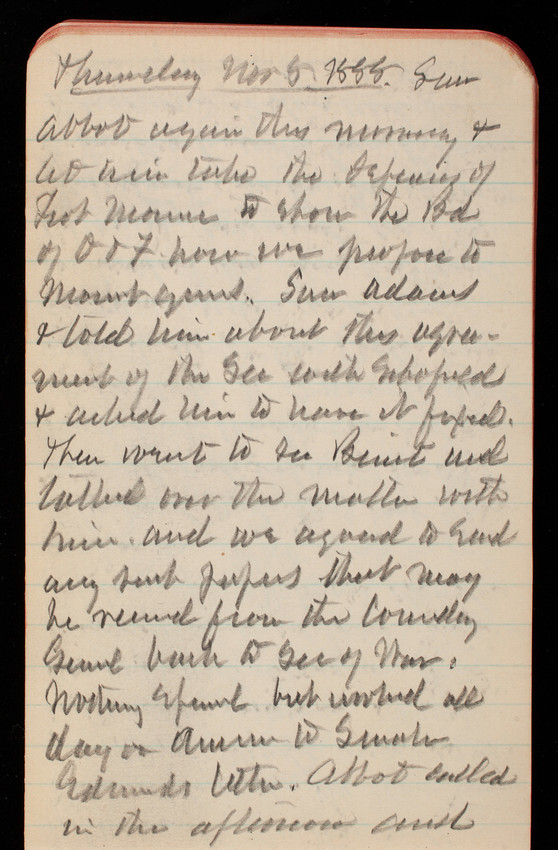 Thursday Nov 8 1888. Saw
Abbot again this morning &
let him take the drawings of
Frot Monroe to show the Bd
of O & F how we propose to
Mount guns. Saw Adams
& told him about this agree-
ment of the Sec with Schofield
& asked him to have it fixed.
Then went to see Benet and
talked over the matter with
him and we agreed to send
any such papers that may
be received from the Comndg
Genrl back to Sec of War.
Nothing special but worked all
day on Answer to Senator
Edmunds letter. Abbot called
in the afternoon and